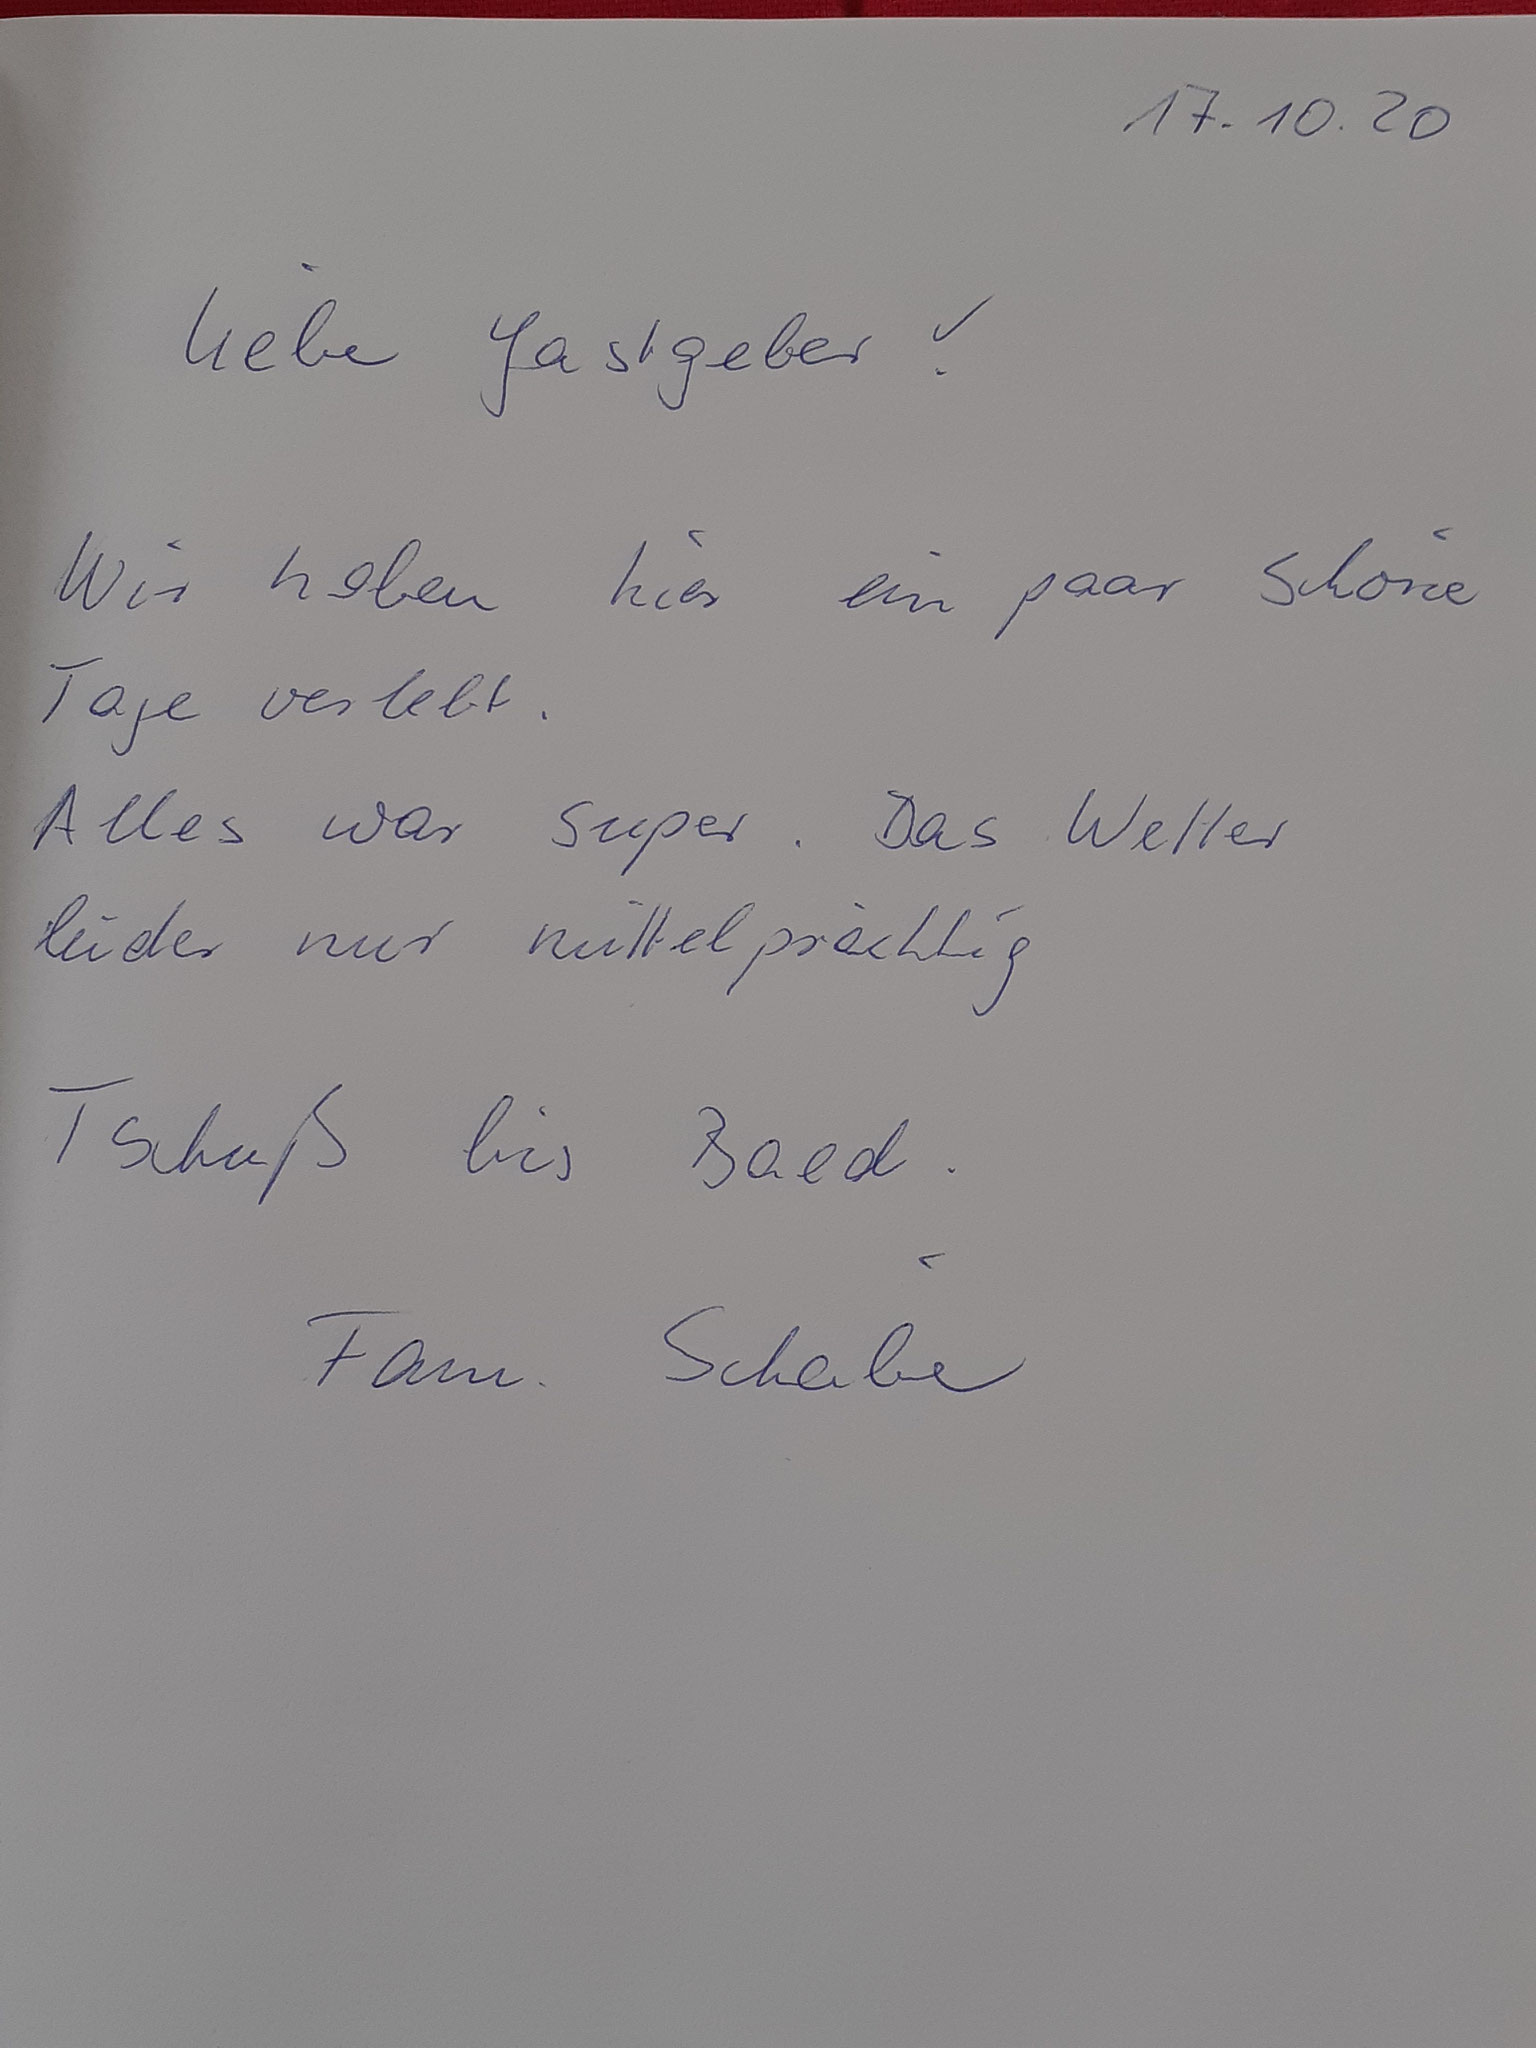 17.10.20
Liebe Gastgeber!
Wir haben hier ein paar schöne
Tage verlebt.
Alles war super. Das Wetter
leider nur mittelprächtig
Tschuß bis Baed.
Fam. Scheibe